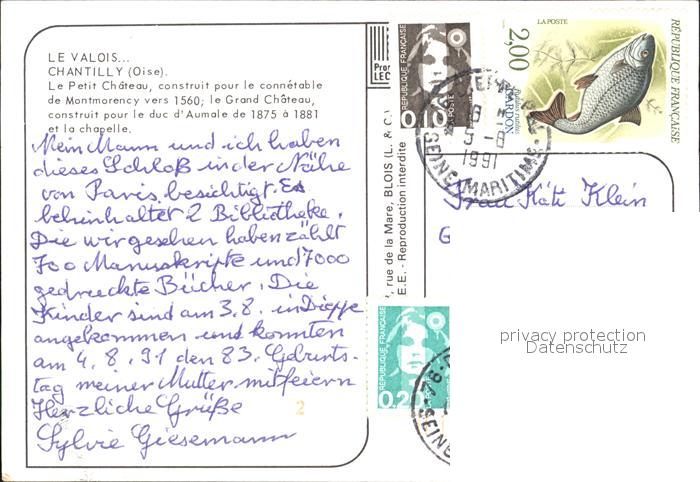 LE VALOIS...
CHANTILLY (Oise).
Le Petit Château, construit pour le connétable
de Montmorency vers 1560; le Grand Château,
construit pour le duc d'Aumale de 1875 à 1881
et la chapelle.
Mein Mann und ich haben
dieses Schloß in der Nähe
von Paris besichtigt. Es
behinhaltet 2 Bibliotheke.
Die wir gesehen haben zählt
700 Manuskripte und 7000
gedruckte Bücher. Die
Kinder sind am 3.8. in Dieppe
angekommen und konnten
am 4.8.91 den 83. Geburts-
tag meiner Mutter mitfeiern
Herzliche Grüße
Sylvie Giesemann
2
rue de la Mare, BLOIS (L. & C.)
E.E. - Reproduction interdite
REPUBLIQUE FRANÇAISE
0,10
LA POSTE
LA POSTE
2,00
GARDON
RÉPUBLIQUE FRANÇAISE
5-8
1991
SEINE MARITIME
Frau Käti Klein
G
REPUBLIQUE FRANÇAISE
0,20
SEINE
privacy protection
Datenschutz